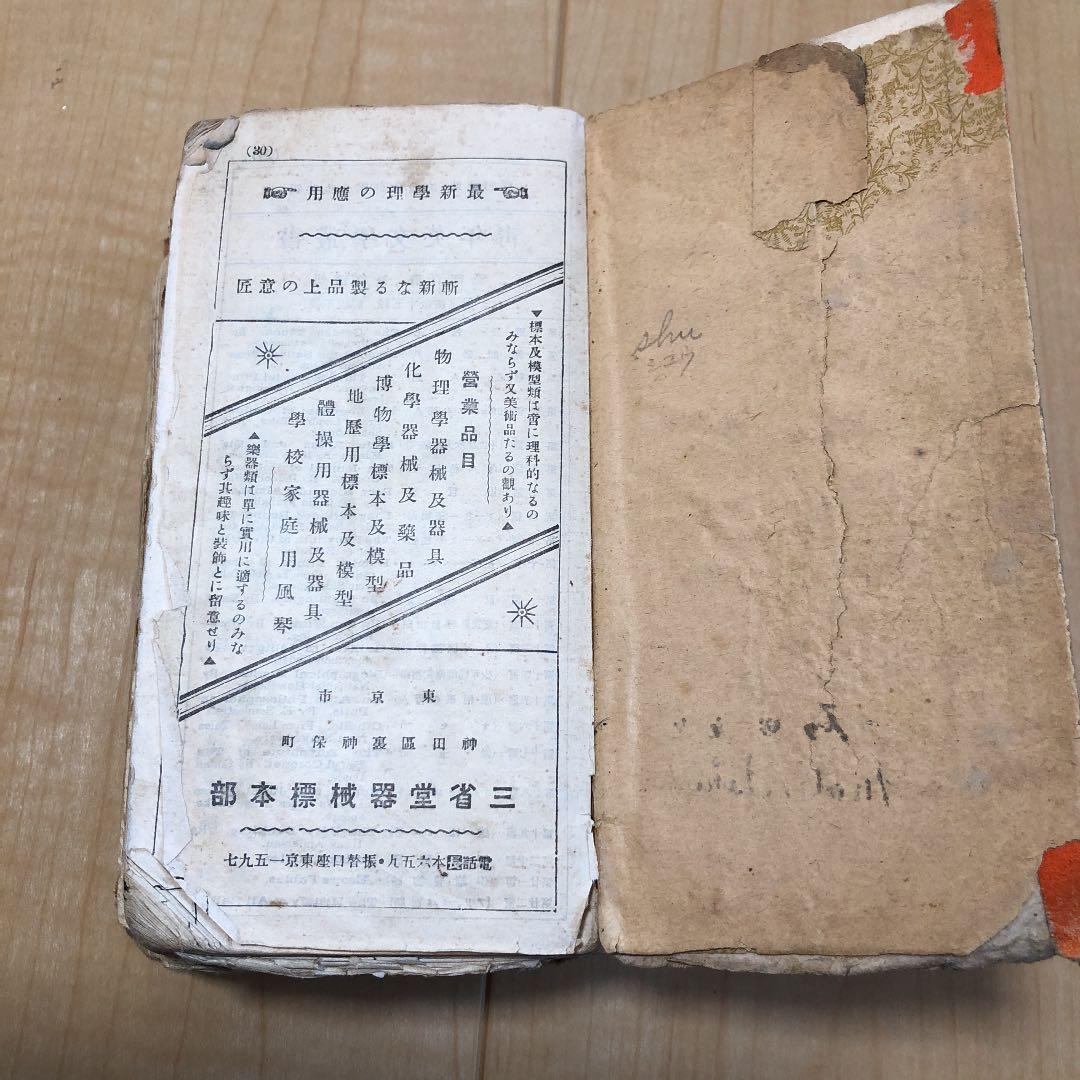 (30)
最新學理の應用
斬新なる製品上の意匠
▼標本及模型類は啻に理科的なるの
みならず又美術品たるの觀あり▲
營業品目
物理學器械及器具
化學器械及藥品
博物學標本及模型
地歷用標本及模型
體操用器械及器具
學校家庭用風琴
▲樂器類は單に實用に適するのみな
らず其趣味と裝飾とに留意せり▲
東京市
神田區裏神保町
三省堂器械標本部
電話長本六五九・振替口座東京一五九七
shu